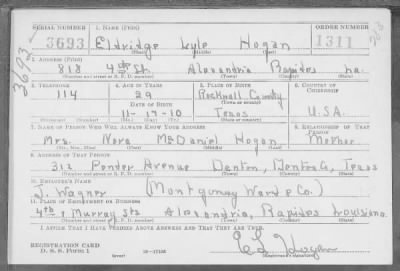 SERIAL NUMBER 1. NAME (Print) ORDER NUMBER
3693 Eldridge Lyle Hogan 1311
(First) (Middle) (Last)
2. ADDRESS (Print)
818 4th St. Alexandria Rapides La.
(Number and street or R. F. D. number) (Town) (County) (State)
3. TELEPHONE 4. AGE IN YEARS 5. PLACE OF BIRTH 6. COUNTRY OF CITIZENSHIP
114 29 Rockwall County
DATE OF BIRTH (Town or county)
11-17-10 Texas U.S.A.
(Exchange) (Number) (Mo.) (Day) (Yr.) (State or country)
7. NAME OF PERSON WHO WILL ALWAYS KNOW YOUR ADDRESS 8. RELATIONSHIP OF THAT PERSON
Mrs. Nora McDaniel Hogan Mother
(Mr., Mrs., Miss) (First) (Middle) (Last)
9. ADDRESS OF THAT PERSON
312 Ponder Avenue Denton, Denton Co, Texas
(Number and street or R. F. D. number) (Town) (County) (State)
10. EMPLOYER'S NAME
J. Wagner (Montgomery Ward & Co.)
11. PLACE OF EMPLOYMENT OR BUSINESS
4th & Murray Sts Alexandria, Rapides Louisiana
(Number and street or R. F. D. number) (Town) (County) (State)
I AFFIRM THAT I HAVE VERIFIED ABOVE ANSWERS AND THAT THEY ARE TRUE.
REGISTRATION CARD
D. S. S. Form 1 E L Hogan
(Registrant's signature)
3693